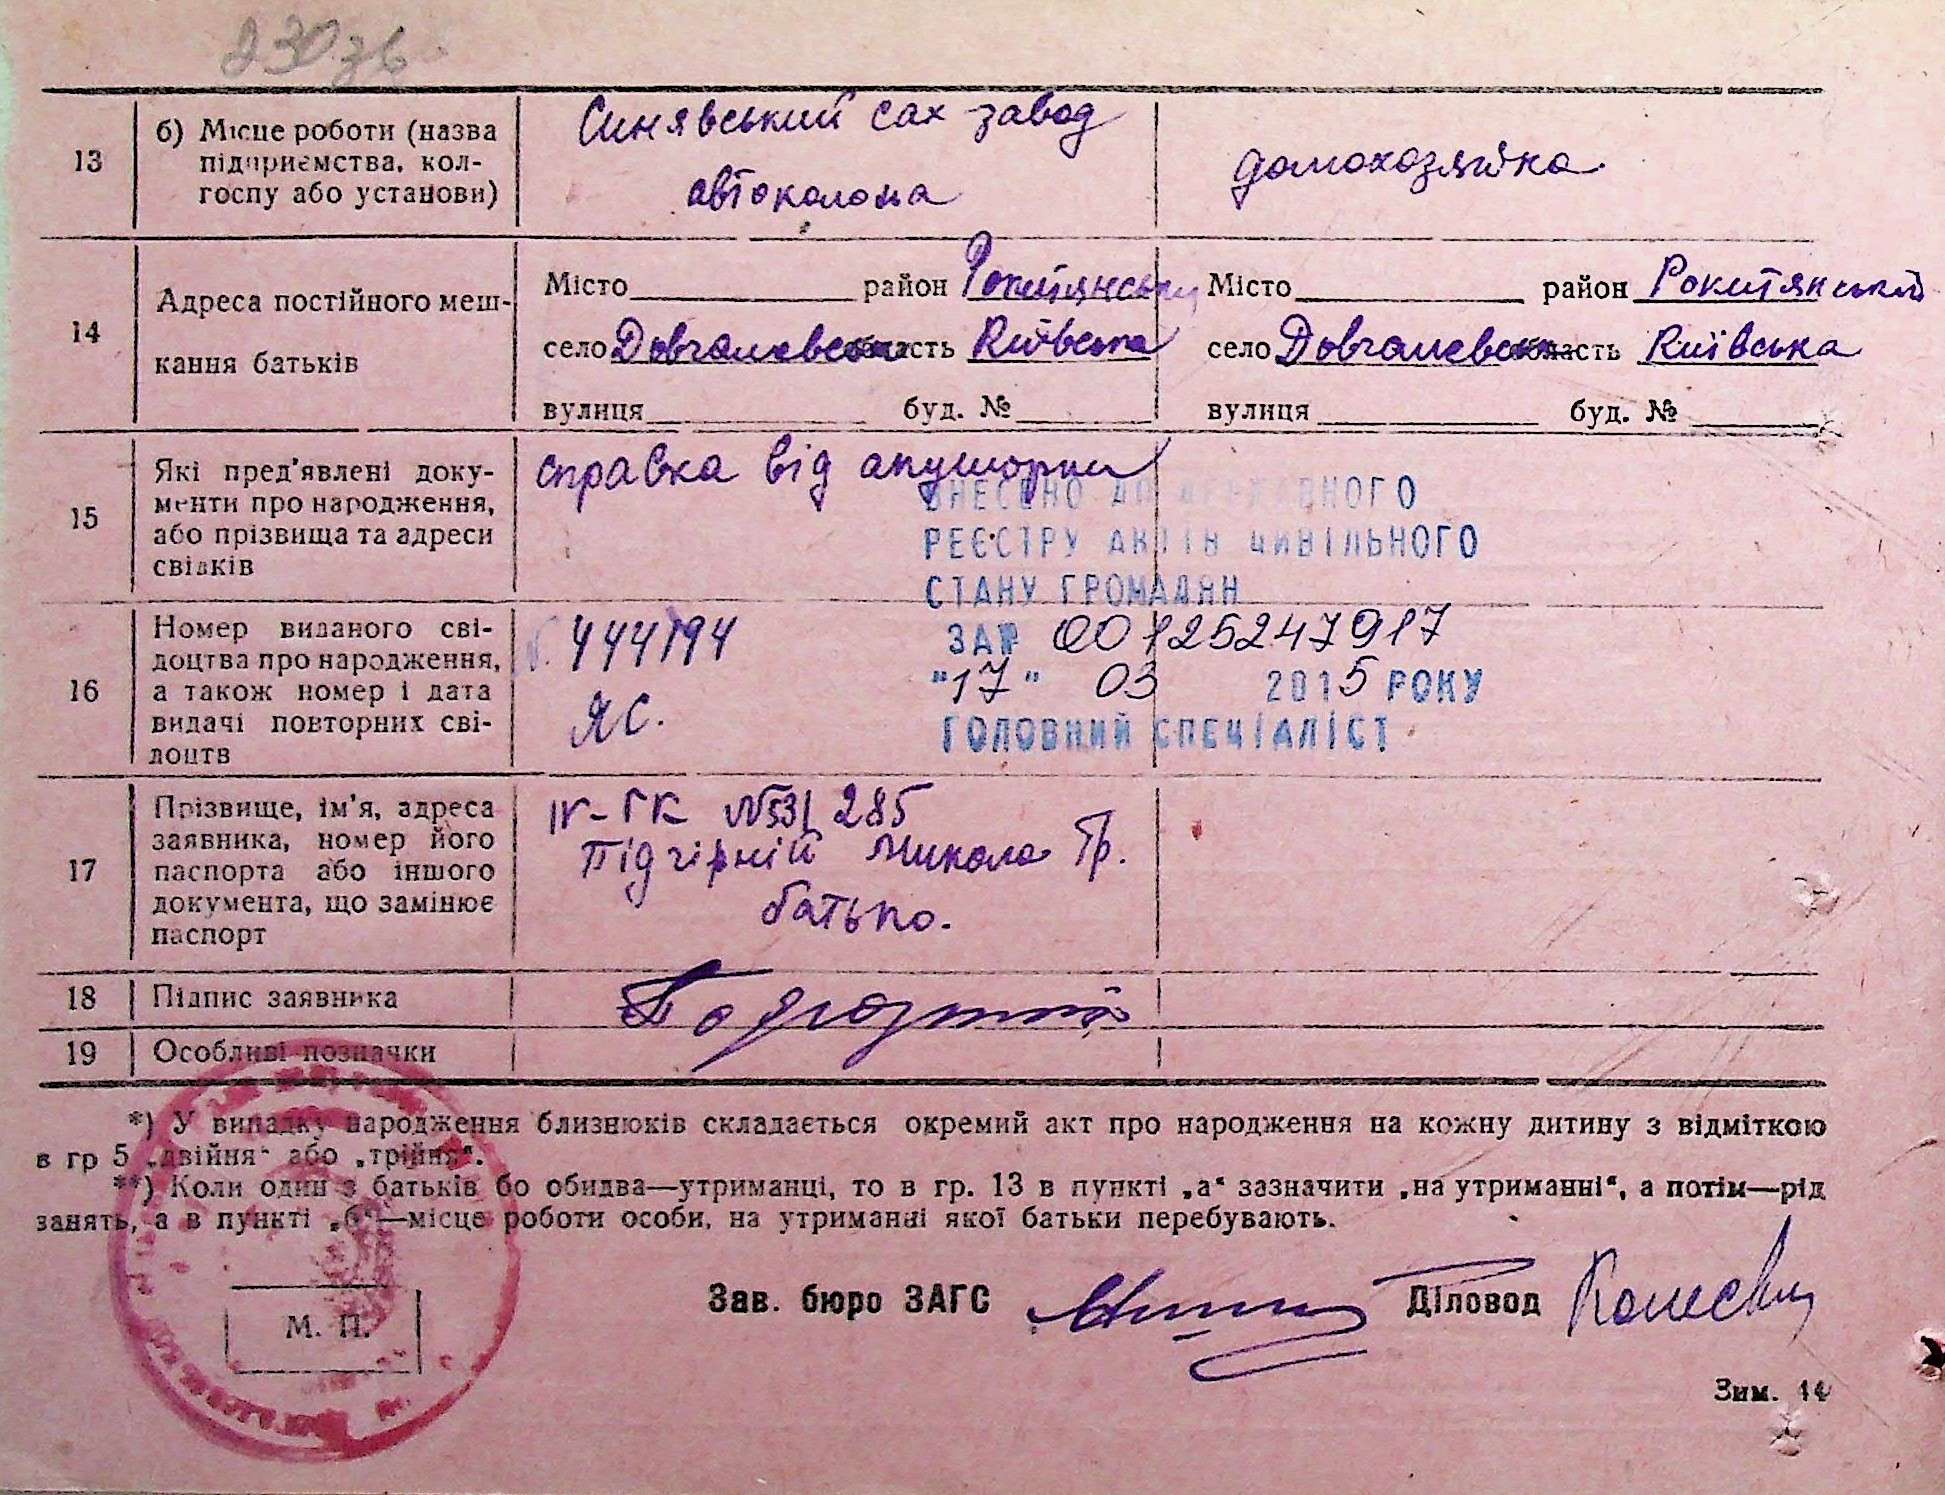 230 зв.
13
б) Місце роботи (назва
підприємства, кол-
госпу або установи)
Синявський сах завод
автоколона
домохозяйка
14
Адреса постійного меш-
кання батьків
Місто район Рокитянський
село Довгалевське область Київська
вулиця буд. №
Місто район Рокитянський
село Довгалевське область Київська
вулиця буд. №
15
Які пред'явлені доку-
менти про народження,
або прізвища та адреси
свідків
справка від акушорки
ВНЕСЕНО ДО ДЕРЖАВНОГО
РЕЄСТРУ АКТІВ ЦИВІЛЬНОГО
СТАНУ ГРОМАДЯН
ЗА № 00125247917
"17" 03 2015 РОКУ
ГОЛОВНИЙ СПЕЦІАЛІСТ
16
Номер виданого сві-
доцтва про народження,
а також номер і дата
видачі повторних сві-
доцтв
444194
ЯС.
17
Прізвище, ім'я, адреса
заявника, номер його
паспорта або іншого
документа, що замінює
паспорт
IV-ГК №531285
Підгірній Микола Гр.
батько.
18
Підпис заявника
19
Особливі позначки
*) У випадку народження близнюків складається окремий акт про народження на кожну дитину з відміткою
в гр 5 „двійня“ або „трійня“.
**) Коли один з батьків бо обидва—утриманці, то в гр. 13 в пункті „а“ зазначити „на утриманні“, а потім—рід
занять, а в пункті „б“—місце роботи особи, на утриманні якої батьки перебувають.
М. П.
Зав. бюро ЗАГС
Діловод
Зим. 14